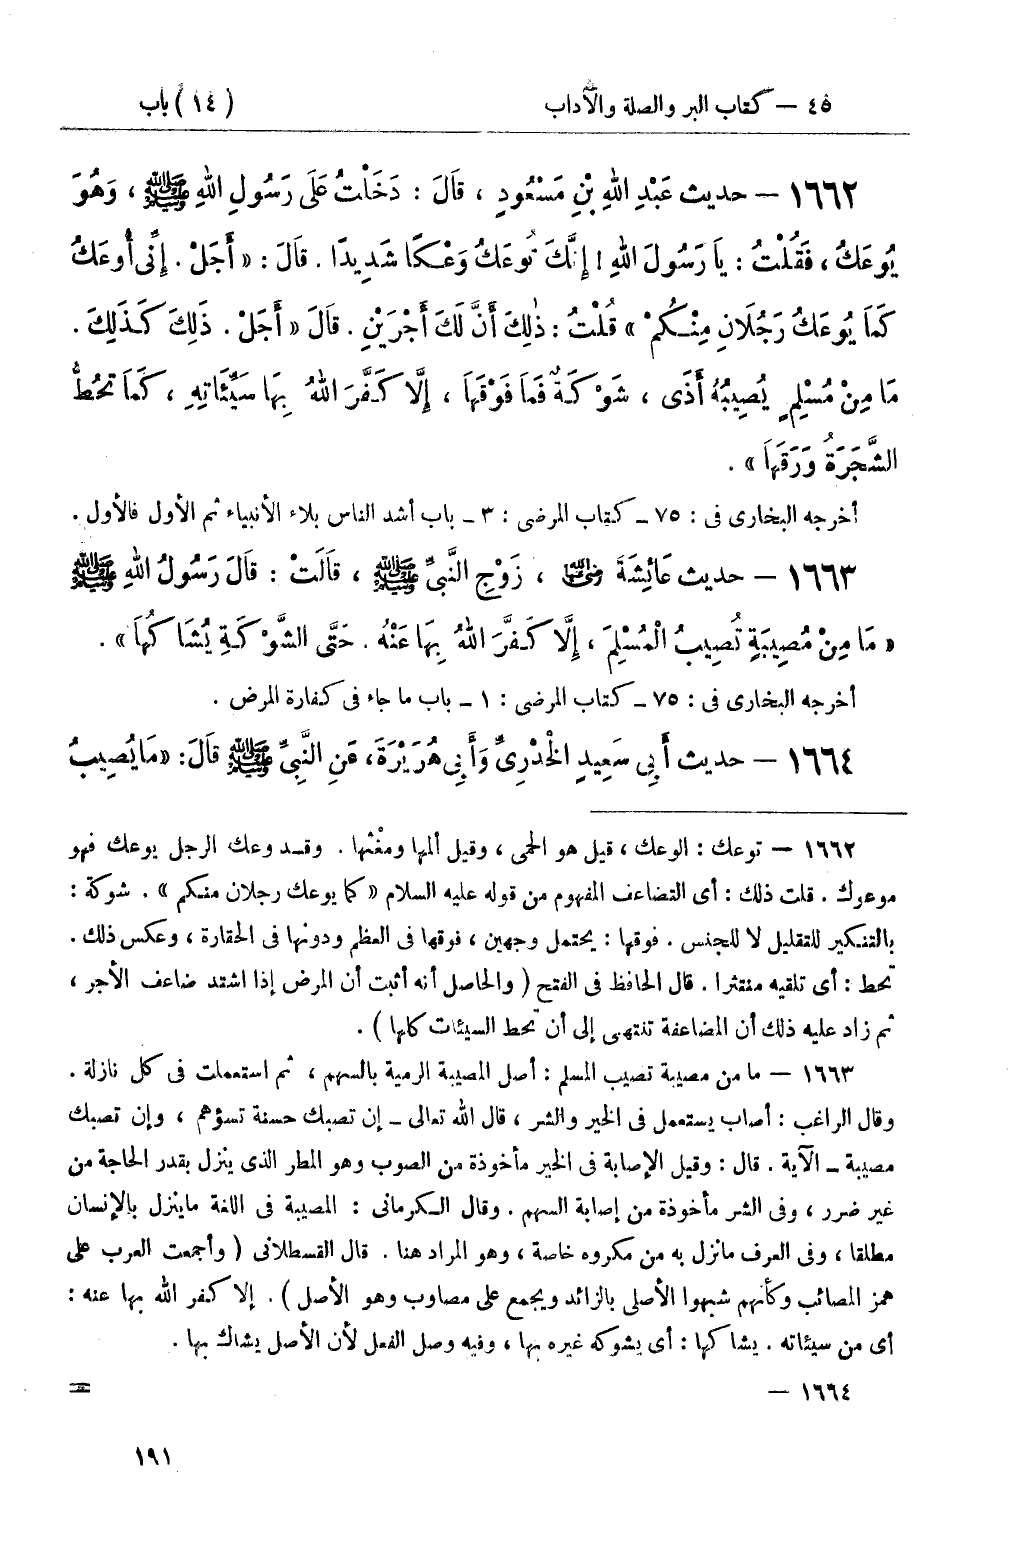 ٤٥ – كتاب البر والصلة والآداب (١٤) باب
١٦٦٢ – حديث عَبْدِ اللهِ بْنِ مَسْعُودٍ ، قَالَ : دَخَلْتُ عَلَى رَسُولِ اللهِ ﷺ ، وَهُوَ
يُوعَكُ ، فَقُلْتُ : يَا رَسُولَ اللهِ ! إِنَّكَ تُوعَكُ وَعْكًا شَدِيدًا . قَالَ : « أَجَلْ . إِنِّى أُوعَكُ
كَمَا يُوعَكُ رَجُلَانِ مِنْكُمْ » قُلْتُ : ذٰلِكَ أَنَّ لَكَ أَجْرَيْنِ . قَالَ « أَجَلْ . ذَلِكَ كَذَلِكَ .
مَا مِنْ مُسْلِمٍ يُصِيبُهُ أَذَى ، شَوْكَةٌ فَمَا فَوْقَهَا ، إِلَّا كَفَّرَ اللهُ بِهَا سَيِّئَاتِهِ ، كَمَا تَحُطُّ
الشَّجَرَةُ وَرَقَهَا » .
أخرجه البخارى فى : ٧٥ ـ كتاب المرضى : ٣ ـ باب أشد الناس بلاء الأنبياء ثم الأول فالأول .
١٦٦٣ – حديث عَائِشَةَ رضى الله عنها ، زَوْجِ النَّبِىِّ ﷺ ، قَالَتْ : قَالَ رَسُولُ اللهِ ﷺ
« مَا مِنْ مُصِيبَةٍ تُصِيبُ الْمُسْلِمَ ، إِلَّا كَفَّرَ اللهُ بِهَا عَنْهُ . حَتَّى الشَّوْكَةِ يُشَاكُهَا » .
أخرجه البخارى فى : ٧٥ ـ كتاب المرضى : ١ ـ باب ما جاء فى كفارة المرض .
١٦٦٤ – حديث أَبِى سَعِيدٍ الْخُدْرِىِّ وَأَبِى هُرَيْرَةَ ، عَنِ النَّبِىِّ ﷺ قَالَ : « مَا يُصِيبُ
١٦٦٢ – توعك : الوعك ، قيل هو الحمى ، وقيل ألمها ومغثها . وقد وعك الرجل يوعك فهو
موعوك . قلت ذلك : أى التضاعف المفهوم من قوله عليه السلام « كما يوعك رجلان منكم » . شوكة :
بالتنكير للتقليل لا للجنس . فوقها : يحتمل وجهين ، فوقها فى العظم ودونها فى الحقارة ، وعكس ذلك .
تحط : أى تلقيه منتثرا . قال الحافظ فى الفتح ( والحاصل أنه أثبت أن المرض إذا اشتد ضاعف الأجر ،
ثم زاد عليه ذلك أن المضاعفة تنتهى إلى أن تحط السيئات كلها ) .
١٦٦٣ – ما من مصيبة تصيب المسلم : أصل المصيبة الرمية بالسهم ، ثم استعملت فى كل نازلة .
وقال الراغب : أصاب يستعمل فى الخير والشر ، قال الله تعالى ـ إن تصبك حسنة تسؤهم ، وإن تصبك
مصيبة ـ الآية . قال : وقيل الإصابة فى الخير مأخوذة من الصوب وهو المطر الذى ينزل بقدر الحاجة من
غير ضرر ، وفى الشر مأخوذة من إصابة السهم . وقال الكرمانى : المصيبة فى اللغة ماينزل بالإنسان
مطلقا ، وفى العرف مانزل به من مكروه خاصة ، وهو المراد هنا . قال القسطلانى ( وأجمعت العرب على
همز المصائب وكأنهم شبهوا الأصلى بالزائد ويجمع على مصاوب وهو الأصل ) . إلا كفر الله بها عنه :
أى من سيئاته . يشاكها : أى يشوكه غيره بها ، وفيه وصل الفعل لأن الأصل يشاك بها .
١٦٦٤ – =
١٩١